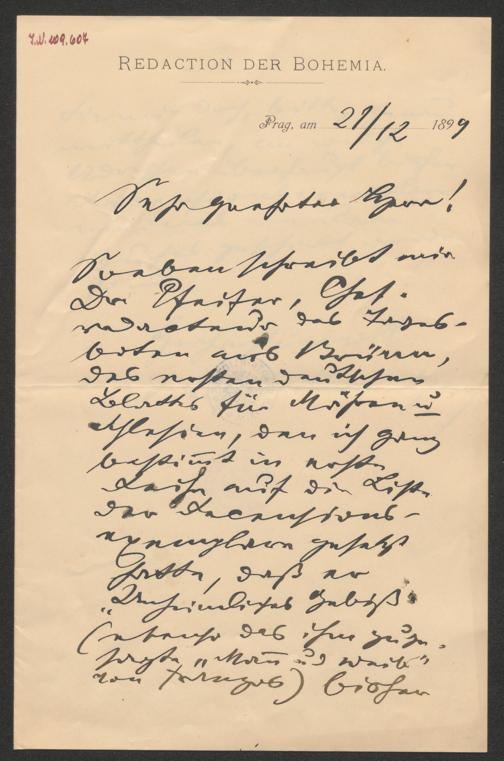 I.N. 109.604
REDACTION DER BOHEMIA.
Prag, am 21/12 1899
Sehr geehrter Herr!
Soeben schreibt mir
Dr Pfeifer, Chef-
redacteur des Tages-
boten aus Brünn,
des ersten deutschen
Blattes für Mähren u
Schlesien, den ich ganz
bestimmt in erste
Reihe auf die Liste
der Recensions-
exemplare gesetzt
hatte, daß er
„Unheimliches
(ebenso das ihm zuge-
sagte „Mann und Weib"
von Franzos) bisher